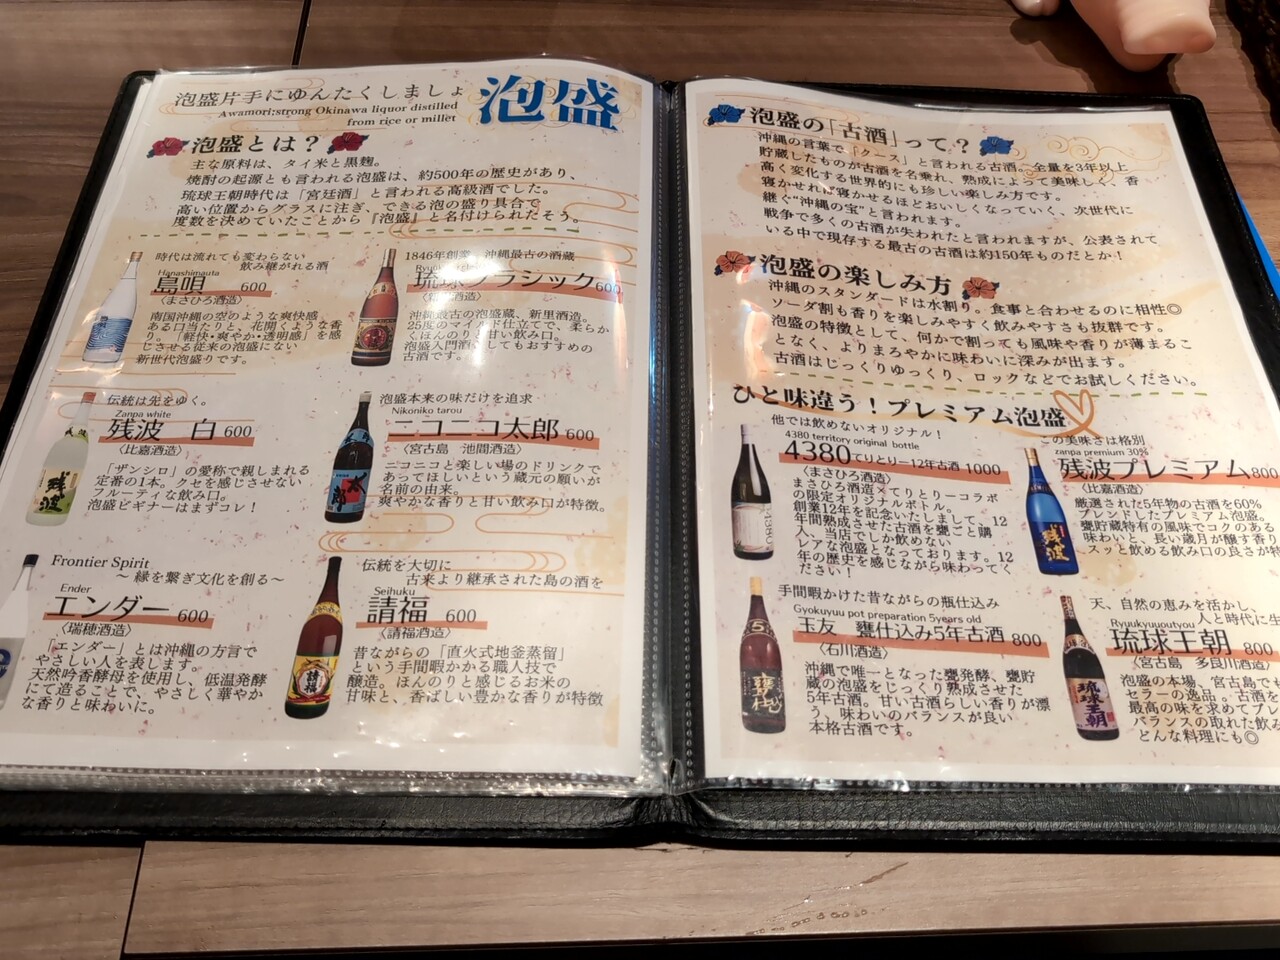 泡盛片手にゆんたくしましょ
泡盛
Awamori;strong Okinawa liquor distilled
from rice or millet
泡盛とは？
主な原料は、タイ米と黒麹。
焼酎の起源とも言われる泡盛は、約500年の歴史があり、
琉球王朝時代は「宮廷酒」と言われる高級酒でした。
高い位置からグラスに注ぎ、できる泡の盛り具合で
度数を決めていたことから『泡盛』と名付けられたそう。
時代は流れても変わらない
飲み継がれる酒
Hanashimauta
島唄 600
〈まさひろ酒造〉
南国沖縄の空のような爽快感
ある口当たりと、花開くような香
り。「軽快・爽やか・透明感」を感
じさせる従来の泡盛にない
新世代泡盛りです。
1846年創業 沖縄最古の酒蔵
琉球クラシック 600
沖縄最古の泡盛蔵、新里酒造。
25度のマイルド仕立てで、柔らか
くほんのりと甘い飲み口。
泡盛入門酒としてもおすすめの
古酒です。
伝統は先をゆく。
Zanpa white
残波 白 600
〈比嘉酒造〉
「ザンシロ」の愛称で親しまれる
定番の1本。クセを感じさせない
フルーティな飲み口。
泡盛ビギナーはまずコレ！
泡盛本来の味だけを追求
Nikoniko tarou
ニコニコ太郎 600
〈宮古島 池間酒造〉
ニコニコと楽しい場のドリンクで
あってほしいという蔵元の願いが
名前の由来。
爽やかな香りと甘い飲み口が特徴。
Frontier Spirit
～縁を繋ぎ文化を創る～
Ender
エンダー 600
〈瑞穂酒造〉
「エンダー」とは沖縄の方言で
やさしい人を表します。
天然吟香酵母を使用し、低温発酵
にて造ることで、やさしく華やか
な香りと味わいに。
伝統を大切に
古来より継承された島の酒を
Seihuku
請福 600
〈請福酒造〉
昔ながらの「直火式地釜蒸留」
という手間暇かかる職人技で
醸造。ほんのりと感じるお米の
甘味と、香ばしい豊かな香りが特徴
泡盛の「古酒」って？
沖縄の言葉で「クース」と言われる古酒。全量を3年以上
貯蔵したものが古酒を名乗れ、熟成によって美味しく、香
高く変化する世界的にも珍しい楽しみ方です。
寝かせれば寝かせるほどおいしくなっていく、次世代に
継ぐ“沖縄の宝”と言われます。
戦争で多くの古酒が失われたと言われますが、公表されて
いる中で現存する最古の古酒は約150年ものだとか！
泡盛の楽しみ方
沖縄のスタンダードは水割り。食事と合わせるのに相性◎
ソーダ割も香りを楽しみやすく飲みやすさも抜群です。
泡盛の特徴として、何かで割っても風味や香りが薄まるこ
となく、よりまろやかに味わいに深みが出ます。
古酒はじっくりゆっくり、ロックなどでお試しください。
ひと味違う！プレミアム泡盛
他では飲めないオリジナル！
4380 territory original bottle
4380てりとりー12年古酒 1000
〈まさひろ酒造〉
まさひろ酒造×てりとりーコラボ
の限定オリジナルボトル。
創業12年を記念いたしまして、12
年間熟成させた古酒を甕ごと購
入。当店でしか飲めない
レアな泡盛となっております。12
年の歴史を感じながら味わってく
ださい！
この美味さは格別
zanpa premium 30%
残波プレミアム 800
〈比嘉酒造〉
厳選された5年物の古酒を60%
ブレンドしたプレミアム泡盛。
甕貯蔵特有の風味でコクのある
味わいと、長い歳月が醸す香り
スッと飲める飲み口の良さが特
手間暇かけた昔ながらの瓶仕込み
Gyokuyuu pot preparation 5years old
玉友 甕仕込み5年古酒 800
〈石川酒造〉
沖縄で唯一となった甕発酵、甕貯
蔵の泡盛をじっくり熟成させた
5年古酒。甘い古酒らしい香りが漂
う、味わいのバランスが良い
本格古酒です。
天、自然の恵みを活かし、
人と時代に生
Ryuukyuuoutyou
琉球王朝 800
〈宮古島 多良川酒造〉
泡盛の本場、宮古島でも
セラーの逸品。古酒を
最高の味を求めてブレ
バランスの取れた飲み
どんな料理にも◎